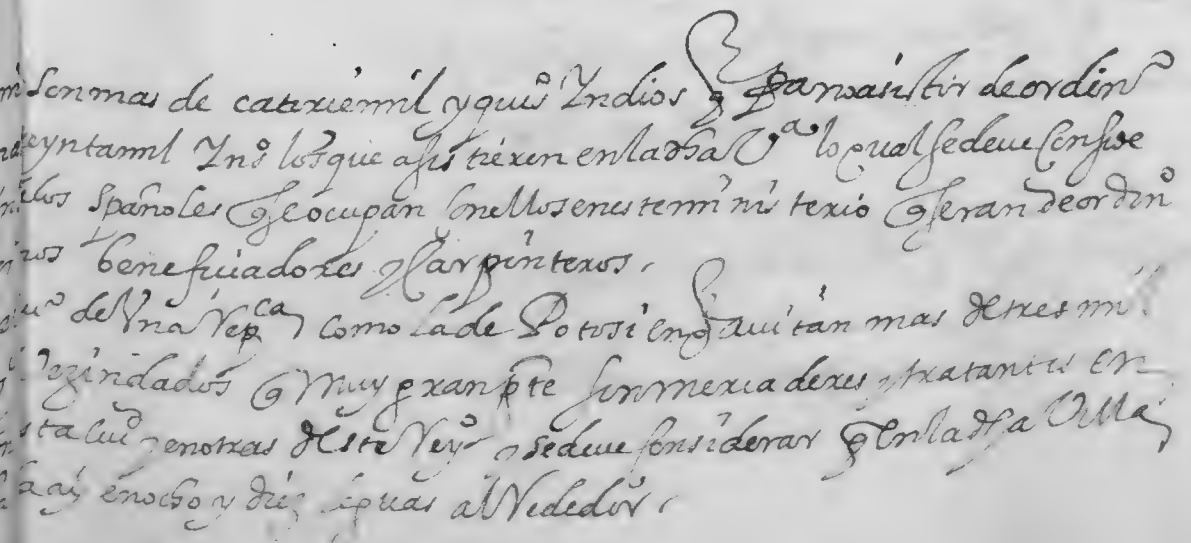 son mas de catorce mil y quis Yndios q̃ para asistir de ordinº
treynta mil Ynºs los que asistieren en la dha Vª lo qual se deve conside
los españoles q̃ se ocupan con ellos en este ministerio q̃ seran de ordinº
beneficiadores y carpinteros.
de Vna Repca como la de Potosi en q̃ avitan mas de tres mil
vezindados q̃ muy gran pte son mercaderes y tratantes en
esta ciud y en otras deste Reyº y se deve considerar q̃ en la dha Villa
ay en ocho y diez leguas al Rededor.